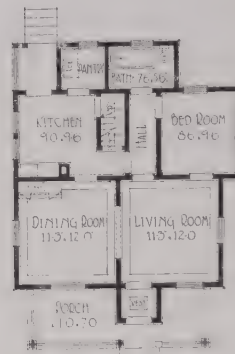 PANTRY
BATH·76·56
KITCHEN
9 0·9 6
HALL
BED ROOM
8 6·9 6
DINING ROOM
11 5·12 0
LIVING ROOM
11 5·12 0
PORCH
10·7 0